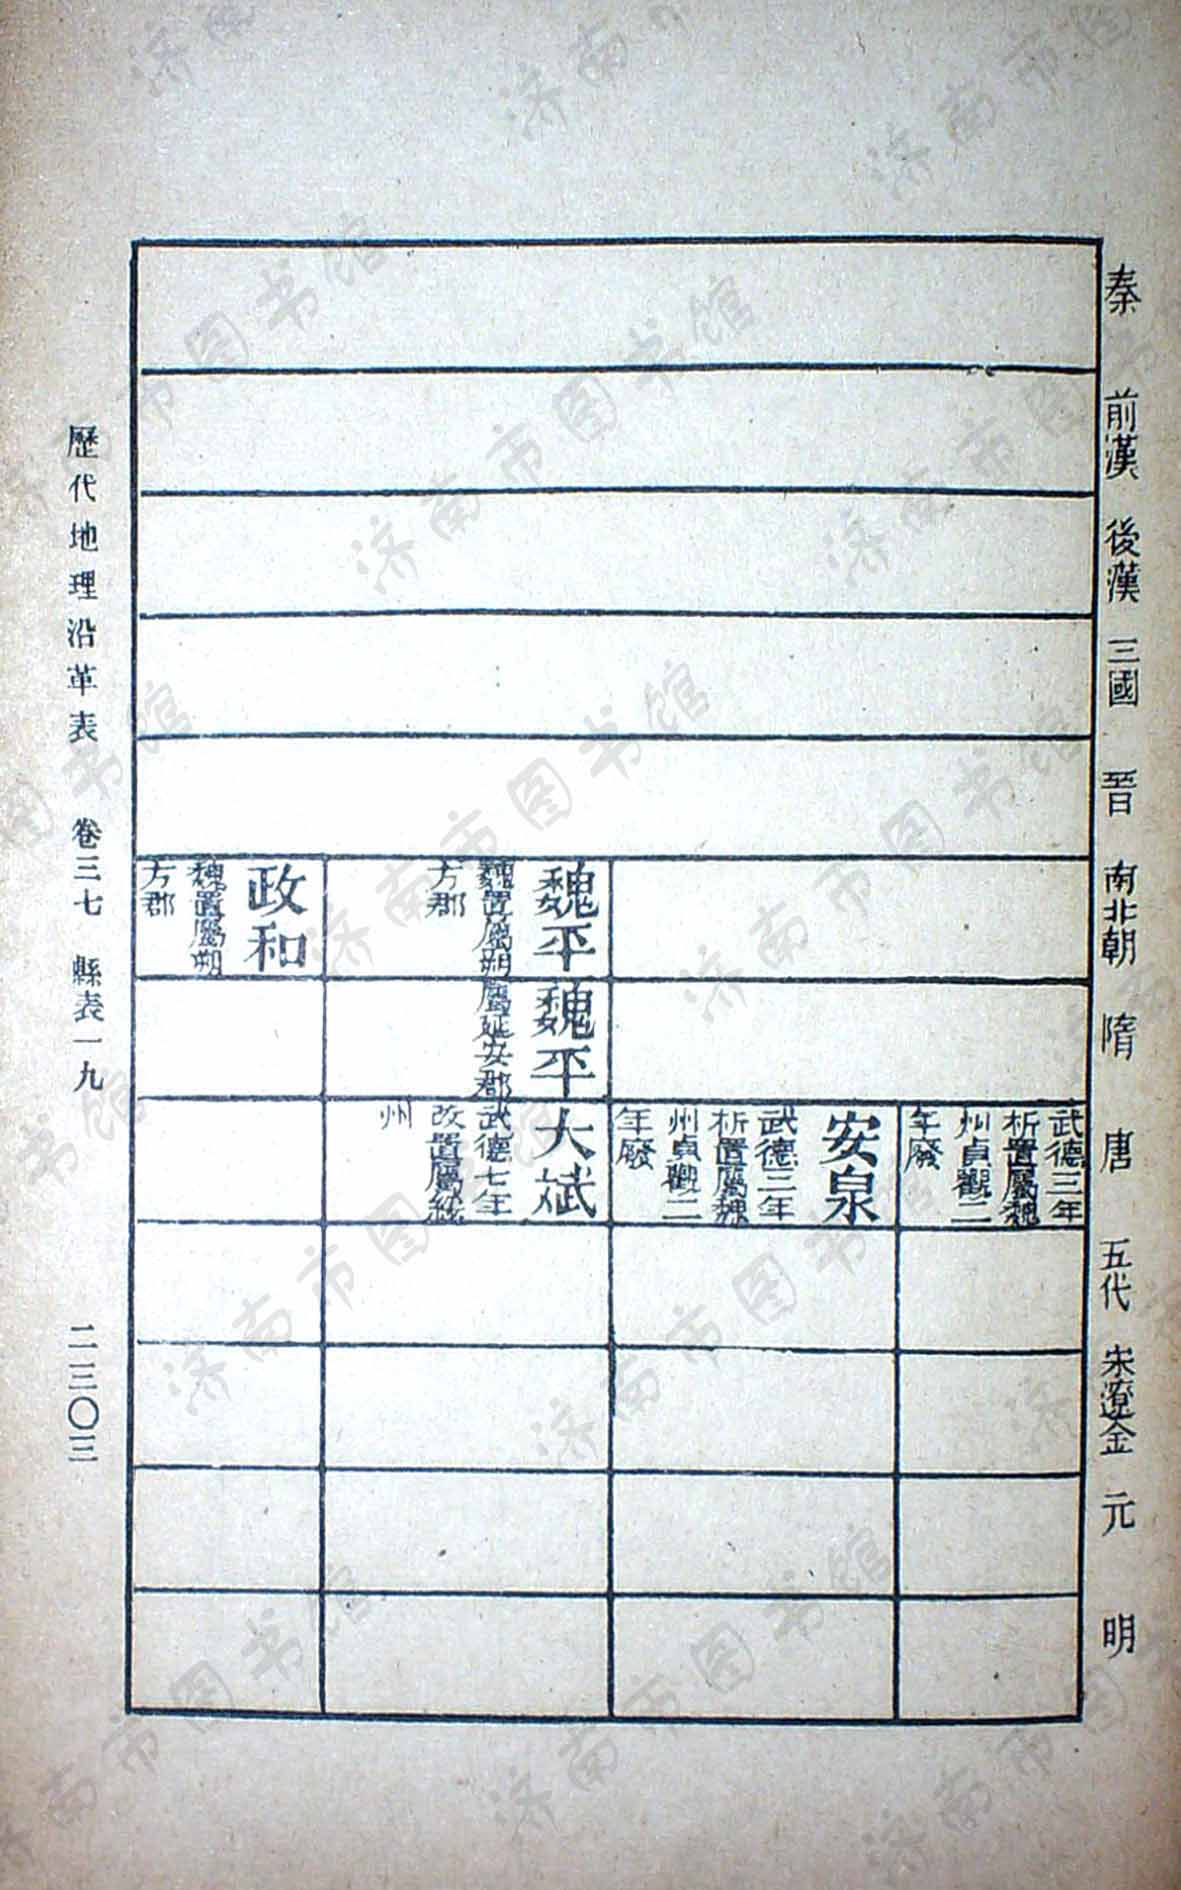 秦
前漢
後漢
三國
晉
南北朝
隋
唐
五代
宋遼金
元
明
武德三年
析置屬魏
州貞觀二
年廢
安泉
武德三年
析置屬魏
州貞觀二
年廢
魏平
魏置屬朔
方郡
魏平
屬延安郡
大斌
武德七年
改置屬綏
州
政和
魏置屬朔
方郡
歷代地理沿革表 卷三七 縣表一九 二三〇三
济南市图书馆